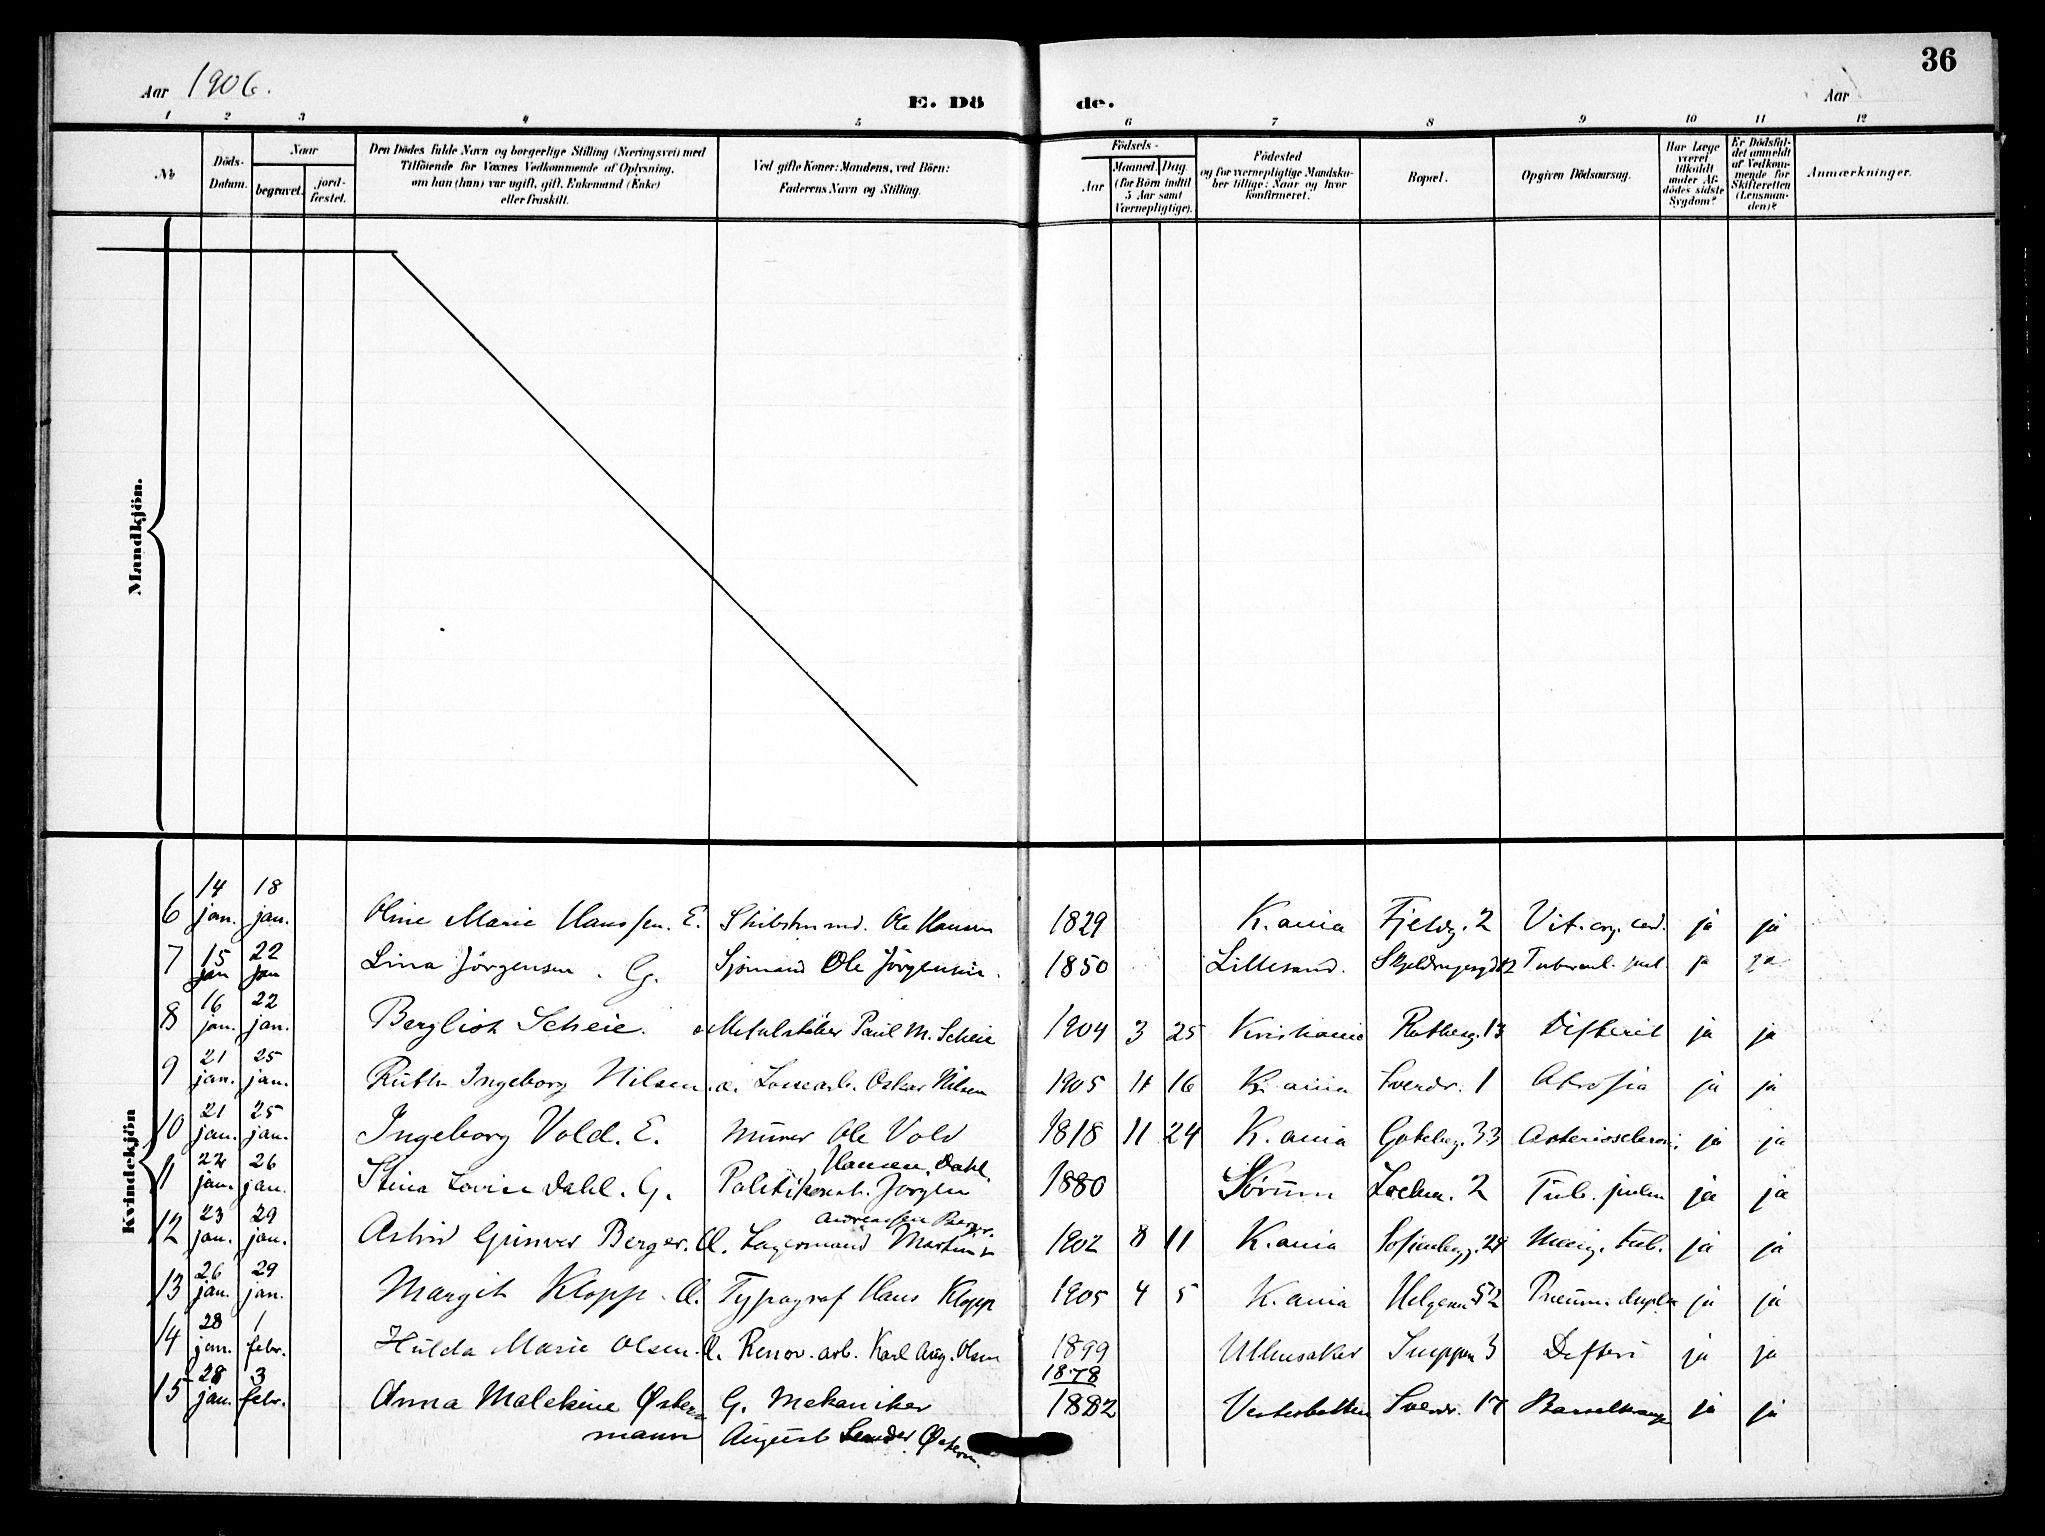 36
Aar 1906.
E. Dö de.
Aar
1 2 3 4 5 6 7 8 9 10 11 12
No
Döds-Datum.
Naar
begravet. jord-fæstet.
Den Dödes fulde Navn og borgerlige Stilling (Næringsvei) med
Tilföiende for Voxnes Vedkommende af Oplysning,
om han (hun) var ugift, gift, Enkemand (Enke)
eller fraskilt.
Ved gifte Koner: Mandens, ved Börn:
Faderens Navn og Stilling.
Födsels-
Aar
Maaned. Dag
(for Börn indtil
5 Aar samt
Værnepligtige).
Födested
og for værnepligtige Mandskaber tillige: Naar og hvor
konfirmeret.
Bopæl.
Opgiven Dödsaarsag.
Har Læge
været
tilkaldt
under Afdödes sidste
Sygdom?
Er Dödsfaldet anmeldt
af Vedkommende for
Skifteretten
(Lensmanden)?
Anmærkninger.
Mandkjön.
Kvindekjön
6 14 jan. 18 jan. Oline Marie Hanssen. E. Ole Hansen 1829 K.ania Fjeldg. 2 Vit. org. cord. ja ja
7 15 jan 22 jan Lina Jörgensen. G. Sjömand Ole Jörgensen. 1850 Lillesand. ja ja
8 16 jan. 22 jan. Bergliot Scheie. Paul M. Scheie 1904 3 25 Kristiania 13 Difterit ja ja
9 21 jan. 25 jan. Ruth Ingeborg Nilsen. a. Oskar Nilsen 1905 11 16 K. ania Sverdr. 1 Atrofia ja ja
10 21 jan. 25 jan. Ingeborg Vold. E. Murer Ole Vold 1818 11 24 K. ania Gotebg. 33 ja ja
11 22 jan. 26 jan. Stina Lovise Dahl. G. Politikonst. Jörgen Hansen Dahl. 1880 Sörum 2 Tub. pulm ja ja
12 23 jan. 29 jan. Astrid Gunvor Berger. a. Lagermand Martin Andreassen Berger 1902 8 11 K.ania Sofienbgg. 24 Mening. tub. ja ja
13 26 jan. 29 jan. Margit Klopp. a. Typograf Hans Klopp 1905 4 5 K. ania Helgesn. 52 Pneum. dupla ja ja
14 28 jan. 1 febr. Hulda Marie Olsen. a. Renov. arb. Karl Aug. Olsen 1899 Ullensaker 3 Defteri ja ja
15 28 jan. 3 febr. Anna Malekine Øster- G. Mekaniker 1878 1882 Vesterbotten Sverdr. 17 ja ja
mann August Østerm.